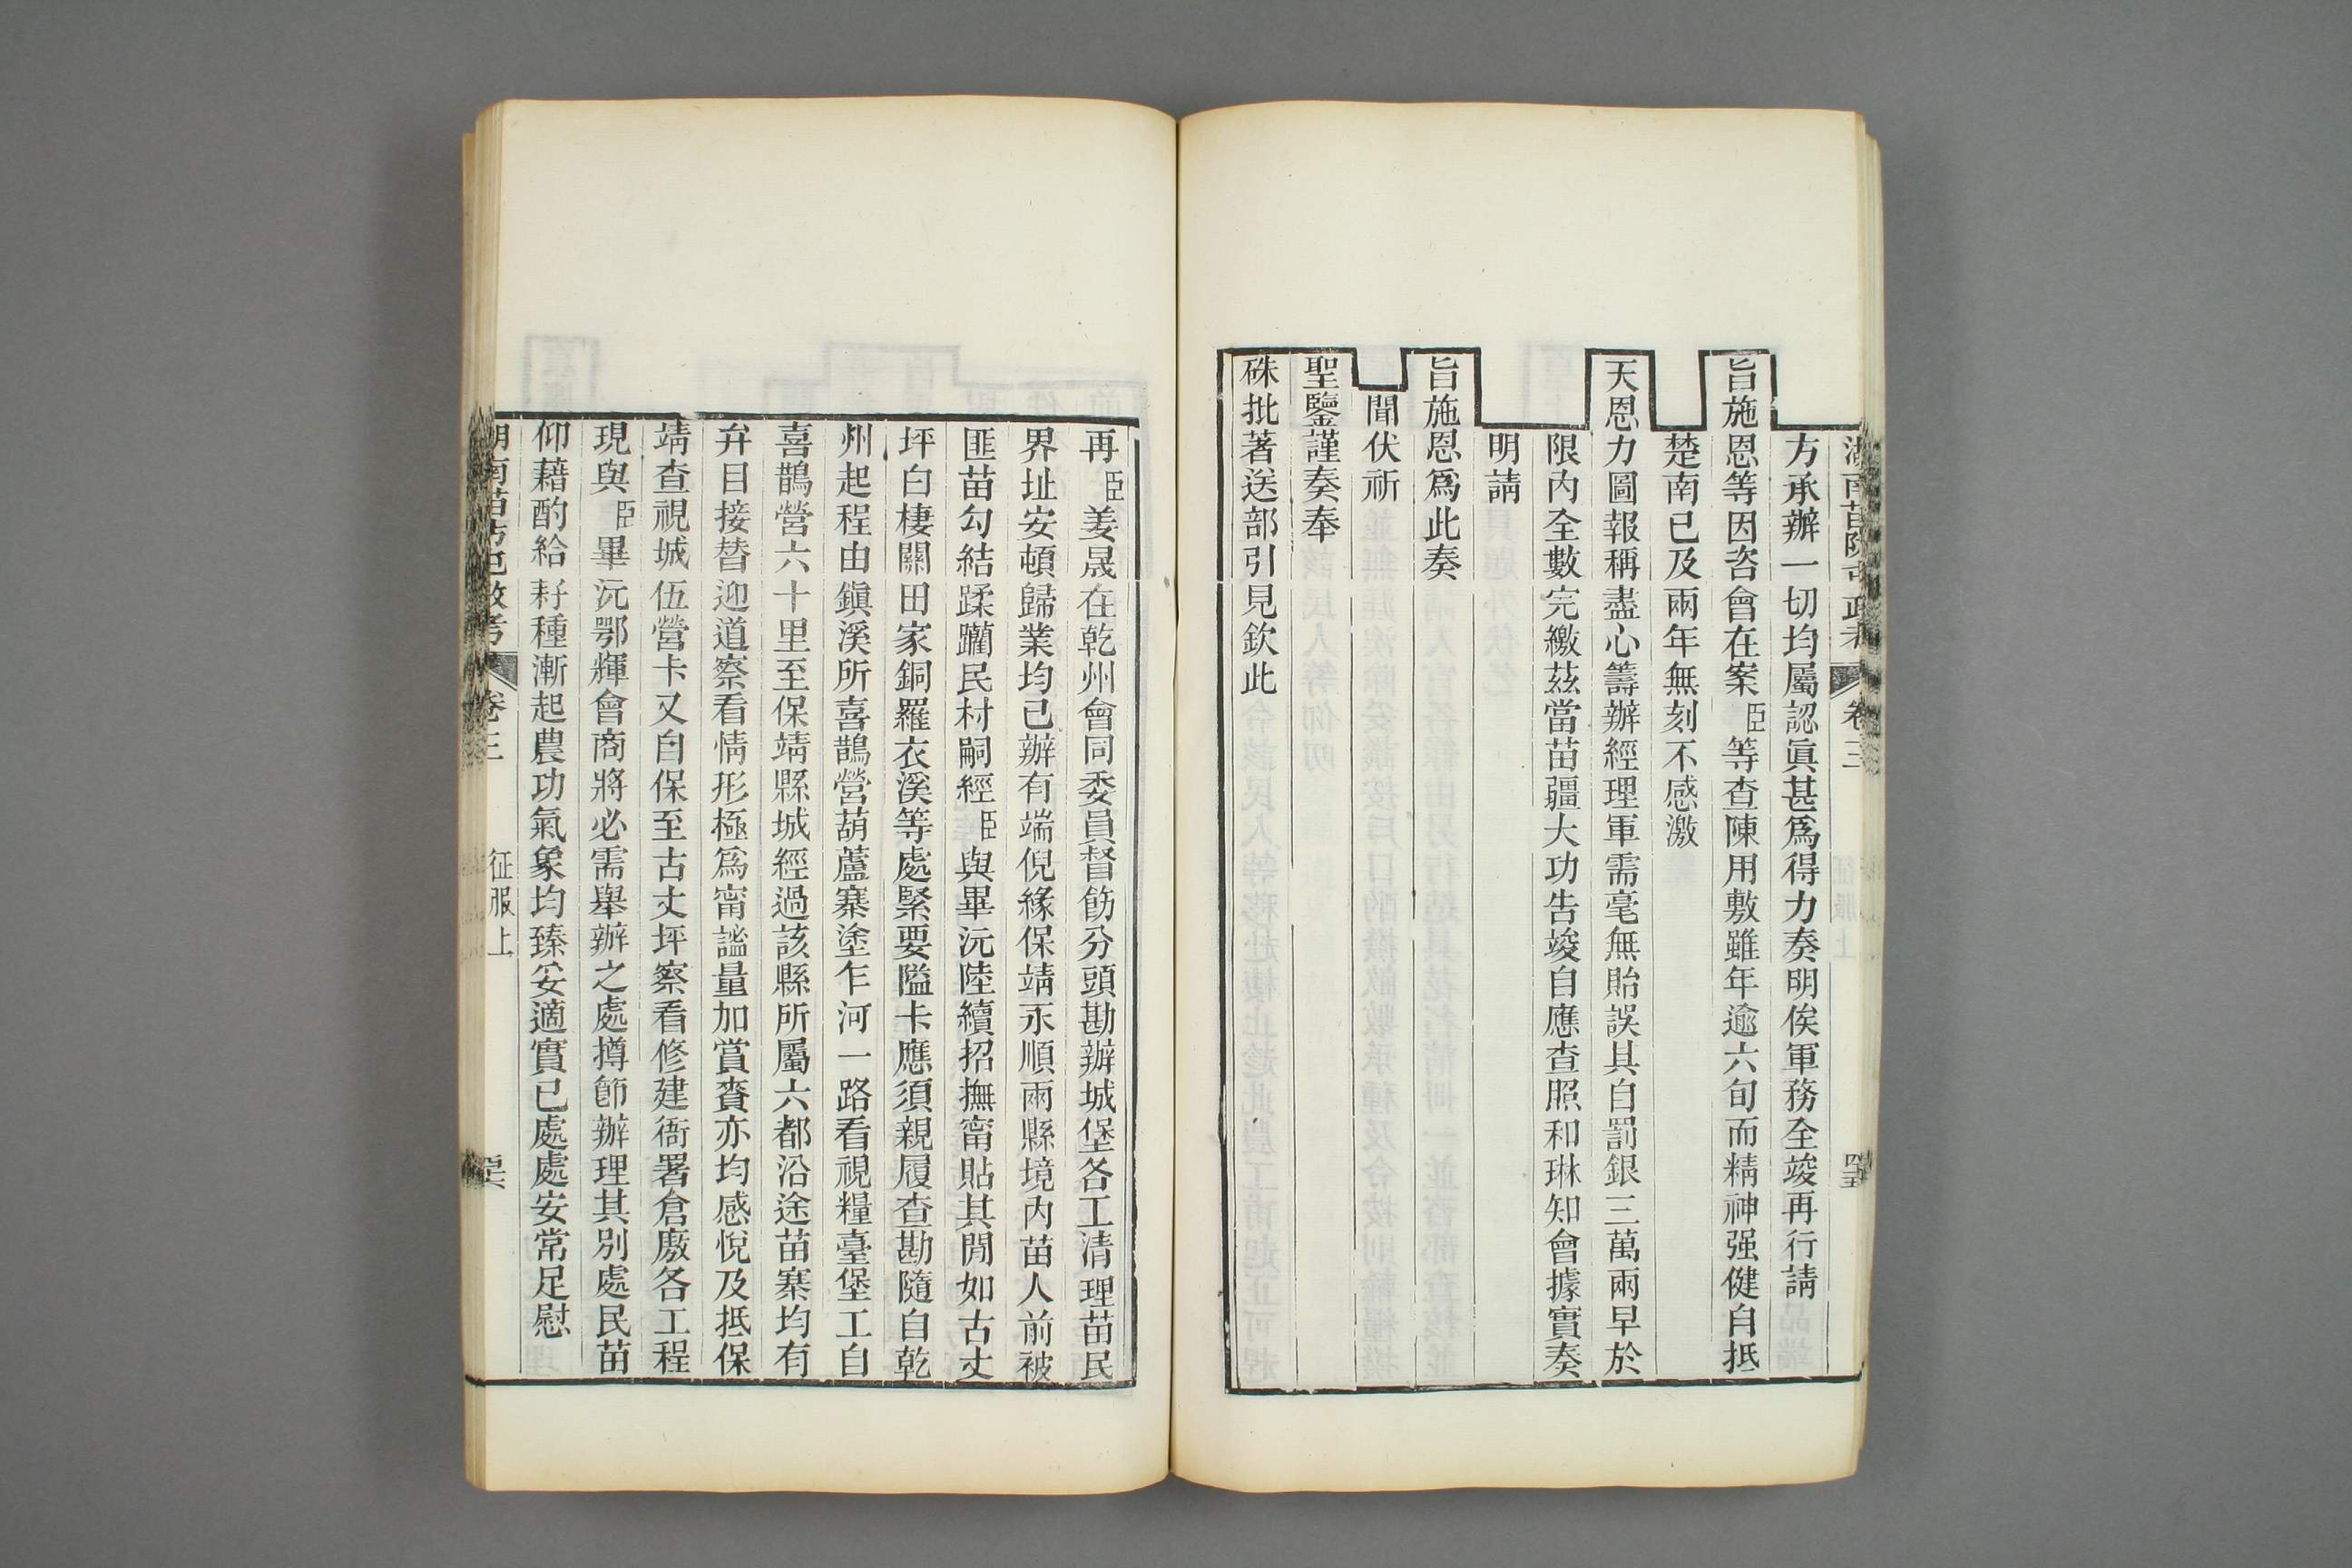 方承辦一切均屬認眞甚爲得力奏明俟軍務全竣再行請
旨施恩等因咨會在案臣等查陳用敷雖年逾六旬而精神强健自抵
楚南已及兩年無刻不感激
天恩力圖報稱盡心籌辦經理軍需毫無貽誤其自罰銀三萬兩早於
限內全數完繳茲當苗疆大功告竣自應查照和琳知會據實奏
明請
旨施恩爲此奏
聞伏祈
聖鑒謹奏奉
硃批著送部引見欽此
再臣姜晟在乾州會同委員督飭分頭勘辦城堡各工清理苗民
界址安頓歸業均已辦有端倪緣保靖永順兩縣境內苗人前被
匪苗勾結蹂躪民村嗣經臣與畢沅陸續招撫甯貼其閒如古丈
坪白棲關田家銅羅衣溪等處緊要隘卡應須親履查勘隨自乾
州起程由鎭溪所喜鵲營葫蘆寨塗乍河一路看視糧臺堡工自
喜鵲營六十里至保靖縣城經過該縣所屬六都沿途苗寨均有
弁目接替迎道察看情形極爲甯謐量加賞賚亦均感悅及抵保
靖查視城伍營卡又自保至古丈坪察看修建衙署倉廒各工程
現與臣畢沅鄂輝會商將必需舉辦之處撙節辦理其別處民苗
仰藉酌給籽種漸起農功氣象均臻安適實已處處安常足慰
卷三
征服上